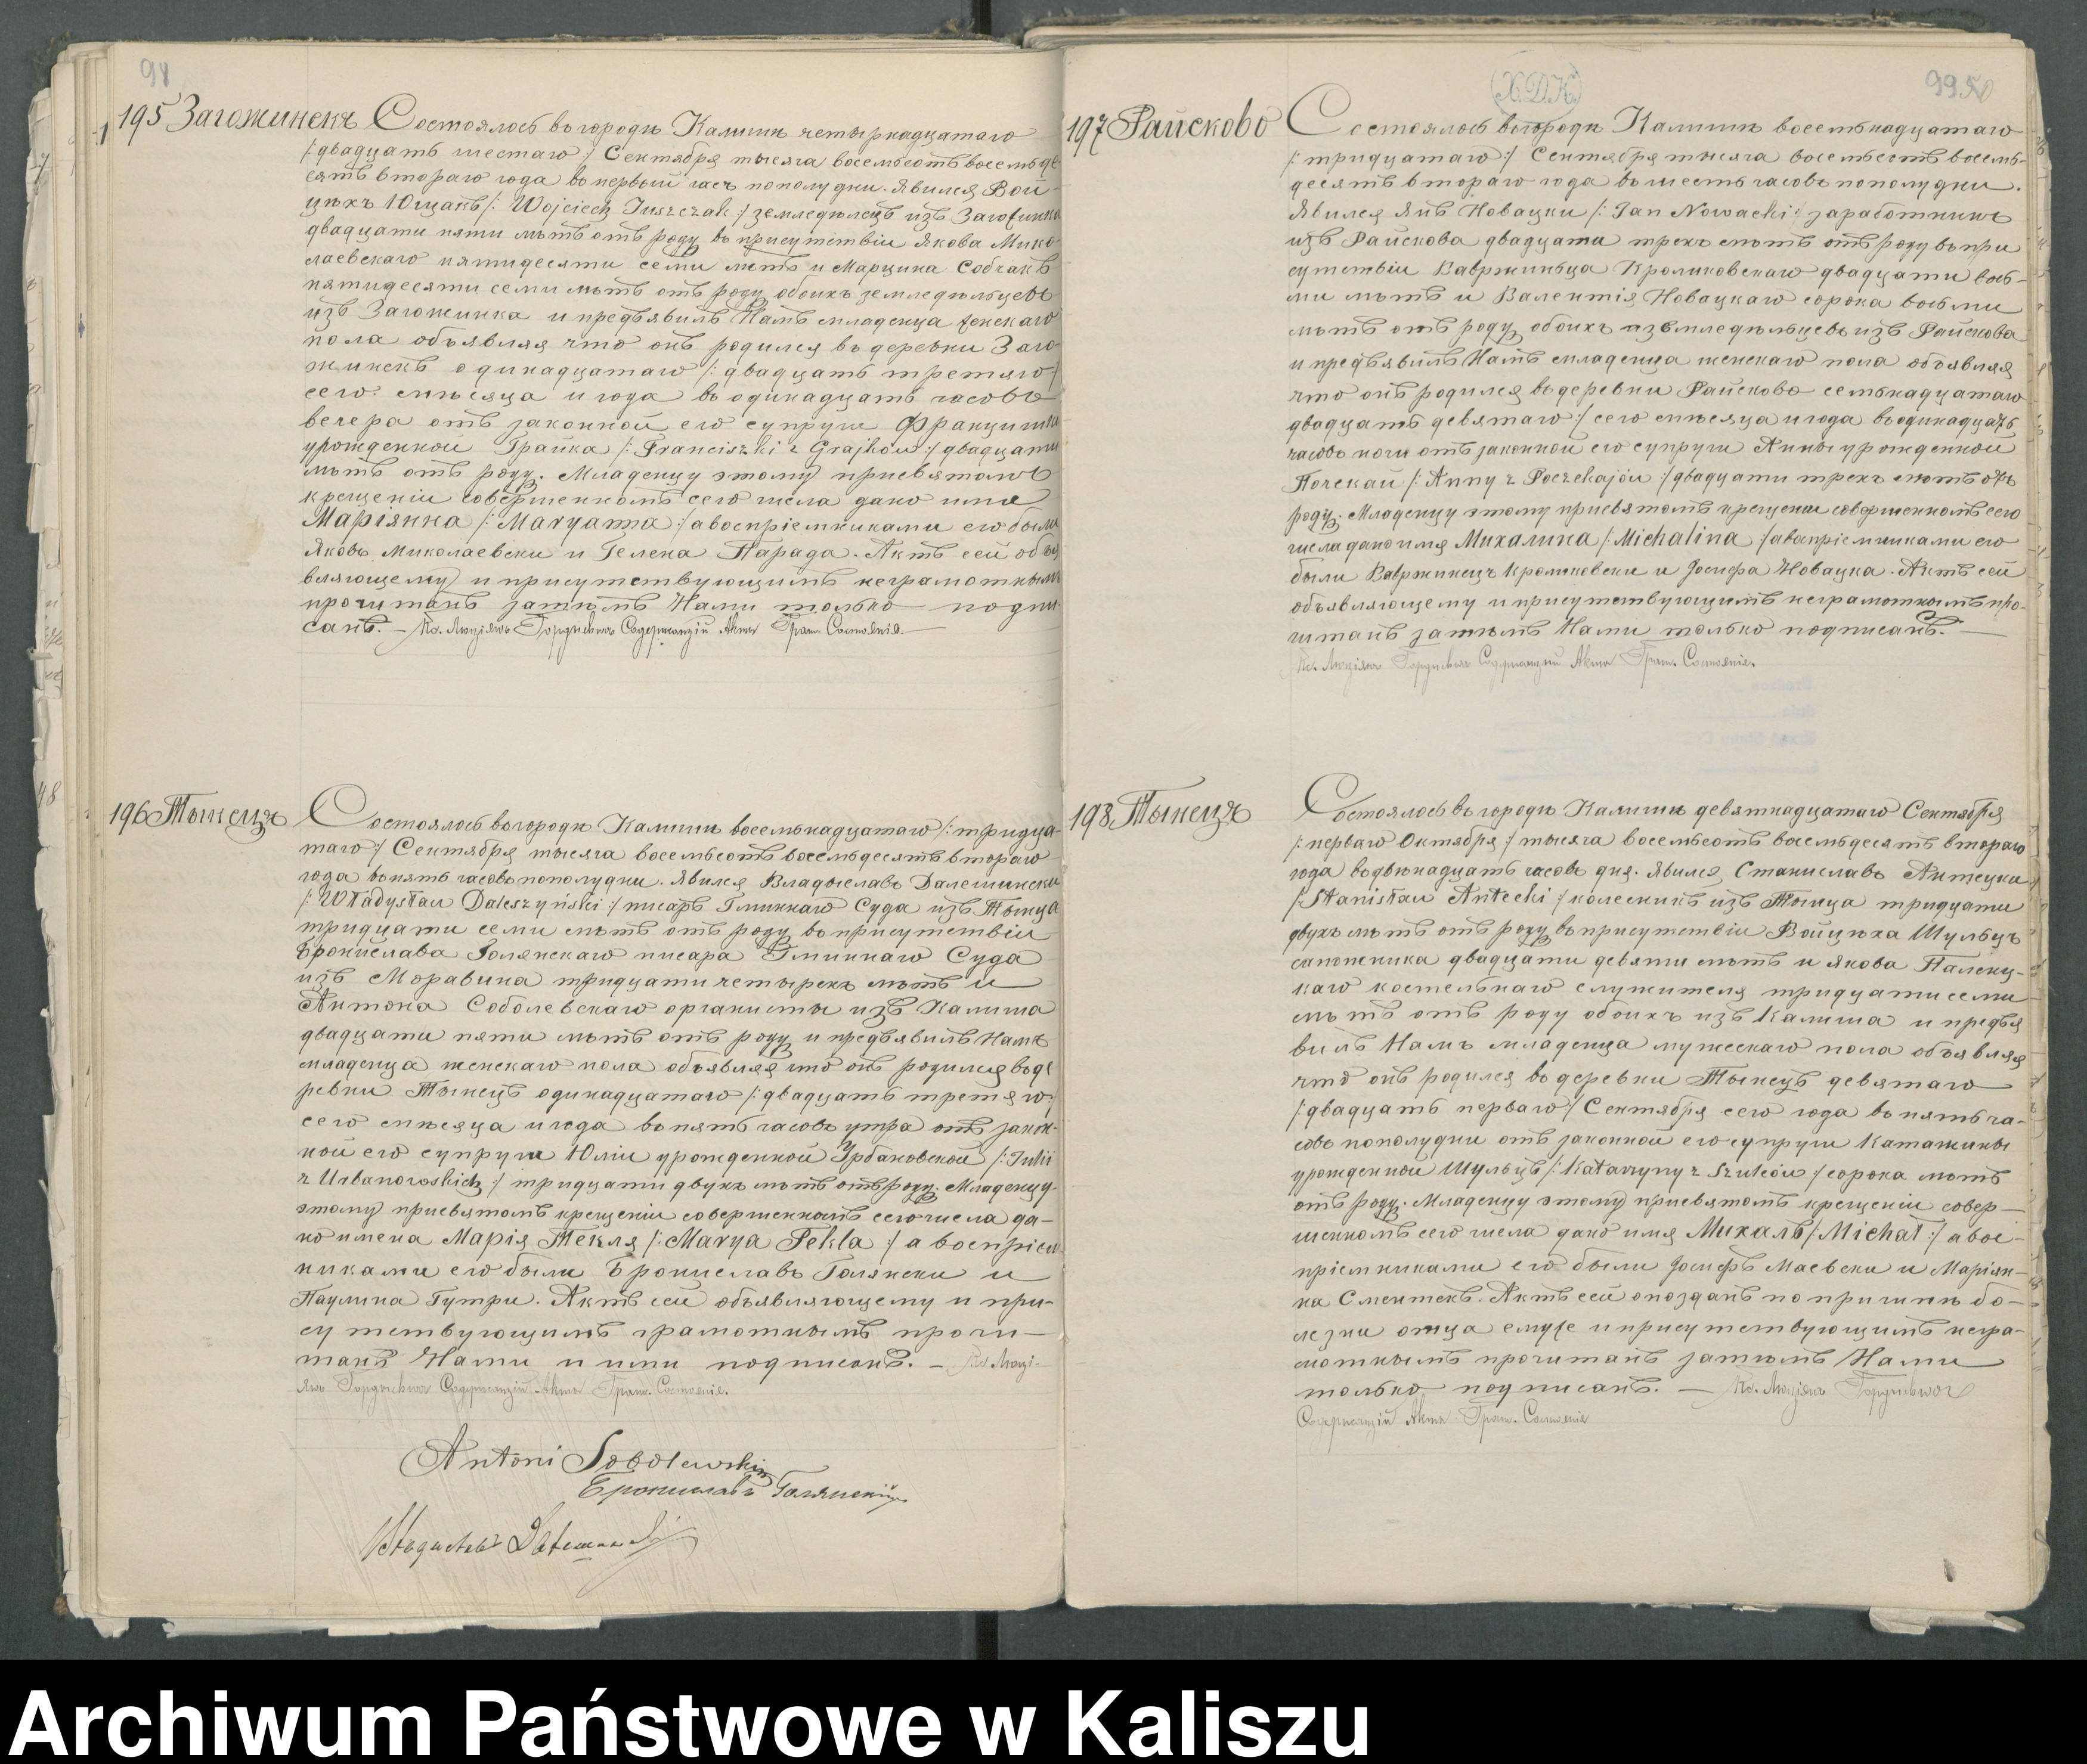 98
195 Загожинекъ Состоялось въ городѣ Калишѣ четырнадцатаго
/: двадцать шестаго :/ Сентября тысяча восемьсотъ восемьде
сятъ втораго года въ первый часъ пополудни. Явился Вой-
цѣхъ Ющакъ /: Wojciech Juszczak :/ земледѣлецъ изъ Загожинка
двадцати пяти лѣтъ отъ роду въ присутствіи Якова Мико-
лаевскаго пятидесяти семи лѣтъ и Марцина Собчакъ
пятидесяти семи лѣтъ отъ роду обоихъ земледѣльцевъ
изъ Загожинка и предъявилъ Намъ младенца женскаго
пола объявляя что онъ родился въ деревни Заго
жинекъ одинадцатаго /: двадцать третяго :/
сего мѣсяца и года въ одинадцать часовъ
вечера отъ законной его супруги Францишки
урожденной Грайка /: Franciszki z Grajków :/ двадцати
лѣтъ отъ роду. Младенцу этому присвятомъ
крещеніи совершенномъ сего числа дано имя
Маріянна /: Maryanna :/ а воспріемниками его были
Яковъ Миколаевски и Гелена Парада. Актъ сей объя
вляющему и присутствующимъ неграмотнымъ
прочитанъ затѣмъ Нами только подпи
санъ. — Кс. Люціянъ Содержащій Акты Граж. Состоянія. —
196 Тынецъ Состоялось въ городѣ Калишѣ восемьнадцатаго /: тридца-
таго :/ Сентября тысяча восемьсотъ восемьдесятъ втораго
года въ пять часовъ пополудни. Явился Владыславъ Далешински
/: Władysław Daleszyński :/ писарь Гминнаго Суда изъ Тынца
тридцати семи лѣтъ отъ роду въ присутствіи
Брониславa Голянскаго писара Гминнаго Суда
изъ Моравина тридцати четырехъ лѣтъ и
Антона Соболевскаго органисты изъ Калиша
двадцати пяти лѣтъ отъ роду и предъявилъ Намъ
младенца женскаго пола объявляя что онъ родился въ де
ревни Тынецъ одинадцатаго /: двадцать третяго :/
сего мѣсяца и года въ пять часовъ утра отъ закон-
ной его супруги Юліи урожденной Урбановской /: Julii
z Urbanowskich :/ тридцати двухъ лѣтъ отъ роду. Младенцу-
этому присвятомъ крещеніи совершенномъ сего числа да-
но имена Марія Текля /: Marya Tekla :/ а воспріем
никами его были Брониславъ Голянски и
Паулина Гутри. Актъ сей объявляющему и при-
сутствующимъ грамотнымъ прочи-
танъ Нами и ими подписанъ. — Кс. Люці-
янъ Содержащій Акты Граж. Состоянія.
Antoni Sobolewski
Брониславъ Голянскій
(Х.Д.К.)
99
197 Райсково Состоялось въ городѣ Калишѣ восемьнадцатаго
/: тридцатаго :/ Сентября тысяча восемьсотъ восемь-
десятъ втораго года въ шесть часовъ пополудни.
Явился Янъ Новацки /: Jan Nowacki :/ заработникъ
изъ Райскова двадцати трехъ лѣтъ отъ роду въ при
сутствіи Вавржиньца Кроликовскаго двадцати вось-
ми лѣтъ и Валентія Новацкаго сорока восьми
лѣтъ отъ роду обоихъ земледѣльцевъ изъ Райскова
и предъявилъ Намъ младенца женскаго пола объявляя
что онъ родился въ деревни Райсково семьнадцатаго
двадцать девятаго :/ сего мѣсяца и года въ одинадцать
часовъ ночи отъ законной его супруги Анны урожденной
Почекай /: Anny z Poczekajów :/ двадцати трехъ лѣтъ отъ
роду. Младенцу этому присвятомъ крещеніи совершенномъ сего
числа дано имя Михалина /: Michalina :/ а воспріемниками его
были Вавржинецъ Кроликовски и Іосифа Новацка. Актъ сей
объявляющему и присутствующимъ неграмотнымъ про-
читанъ затѣмъ Нами только подписанъ. —
Кс. Люціянъ Содержащій Акты Граж. Состоянія.
198 Тынецъ Состоялось въ городѣ Калишѣ девятнадцатаго Сентября
/: перваго Октября :/ тысяча восемьсотъ восемьдесятъ втораго
года въ двѣнадцать часовъ дня. Явился Станиславъ Антецки
/: Stanisław Antecki :/ колесникъ изъ Тынца тридцати
двухъ лѣтъ отъ роду въ присутствіи Войцѣха Шульцъ
сапожника двадцати девяти лѣтъ и Якова Паленц-
каго костельнаго служителя тридцати семи
лѣтъ отъ роду обоихъ изъ Калиша и предъя
вилъ Намъ младенца мужескаго пола объявляя
что онъ родился въ деревни Тынецъ девятаго
/: двадцать перваго :/ Сентября сего года въ пять ча-
совъ пополудни отъ законной его супруги Катажины
урожденной Шульцъ /: Katarzyny z Szulców :/ сорока лѣтъ
отъ роду. Младенцу этому присвятомъ крещеніи совер-
шенномъ сего числа дано имя Михалъ /: Michał :/ а вос-
пріемниками его были Іосифъ Маевски и Маріян-
на Сментекъ. Актъ сей опозданъ по причинѣ бо-
лезни отца ему же и присутствующимъ негра-
мотнымъ прочитанъ затѣмъ Нами
только подписанъ. — Кс. Люціянъ
Содержащій Акты Граж. Состоянія
Archiwum Państwowe w Kaliszu